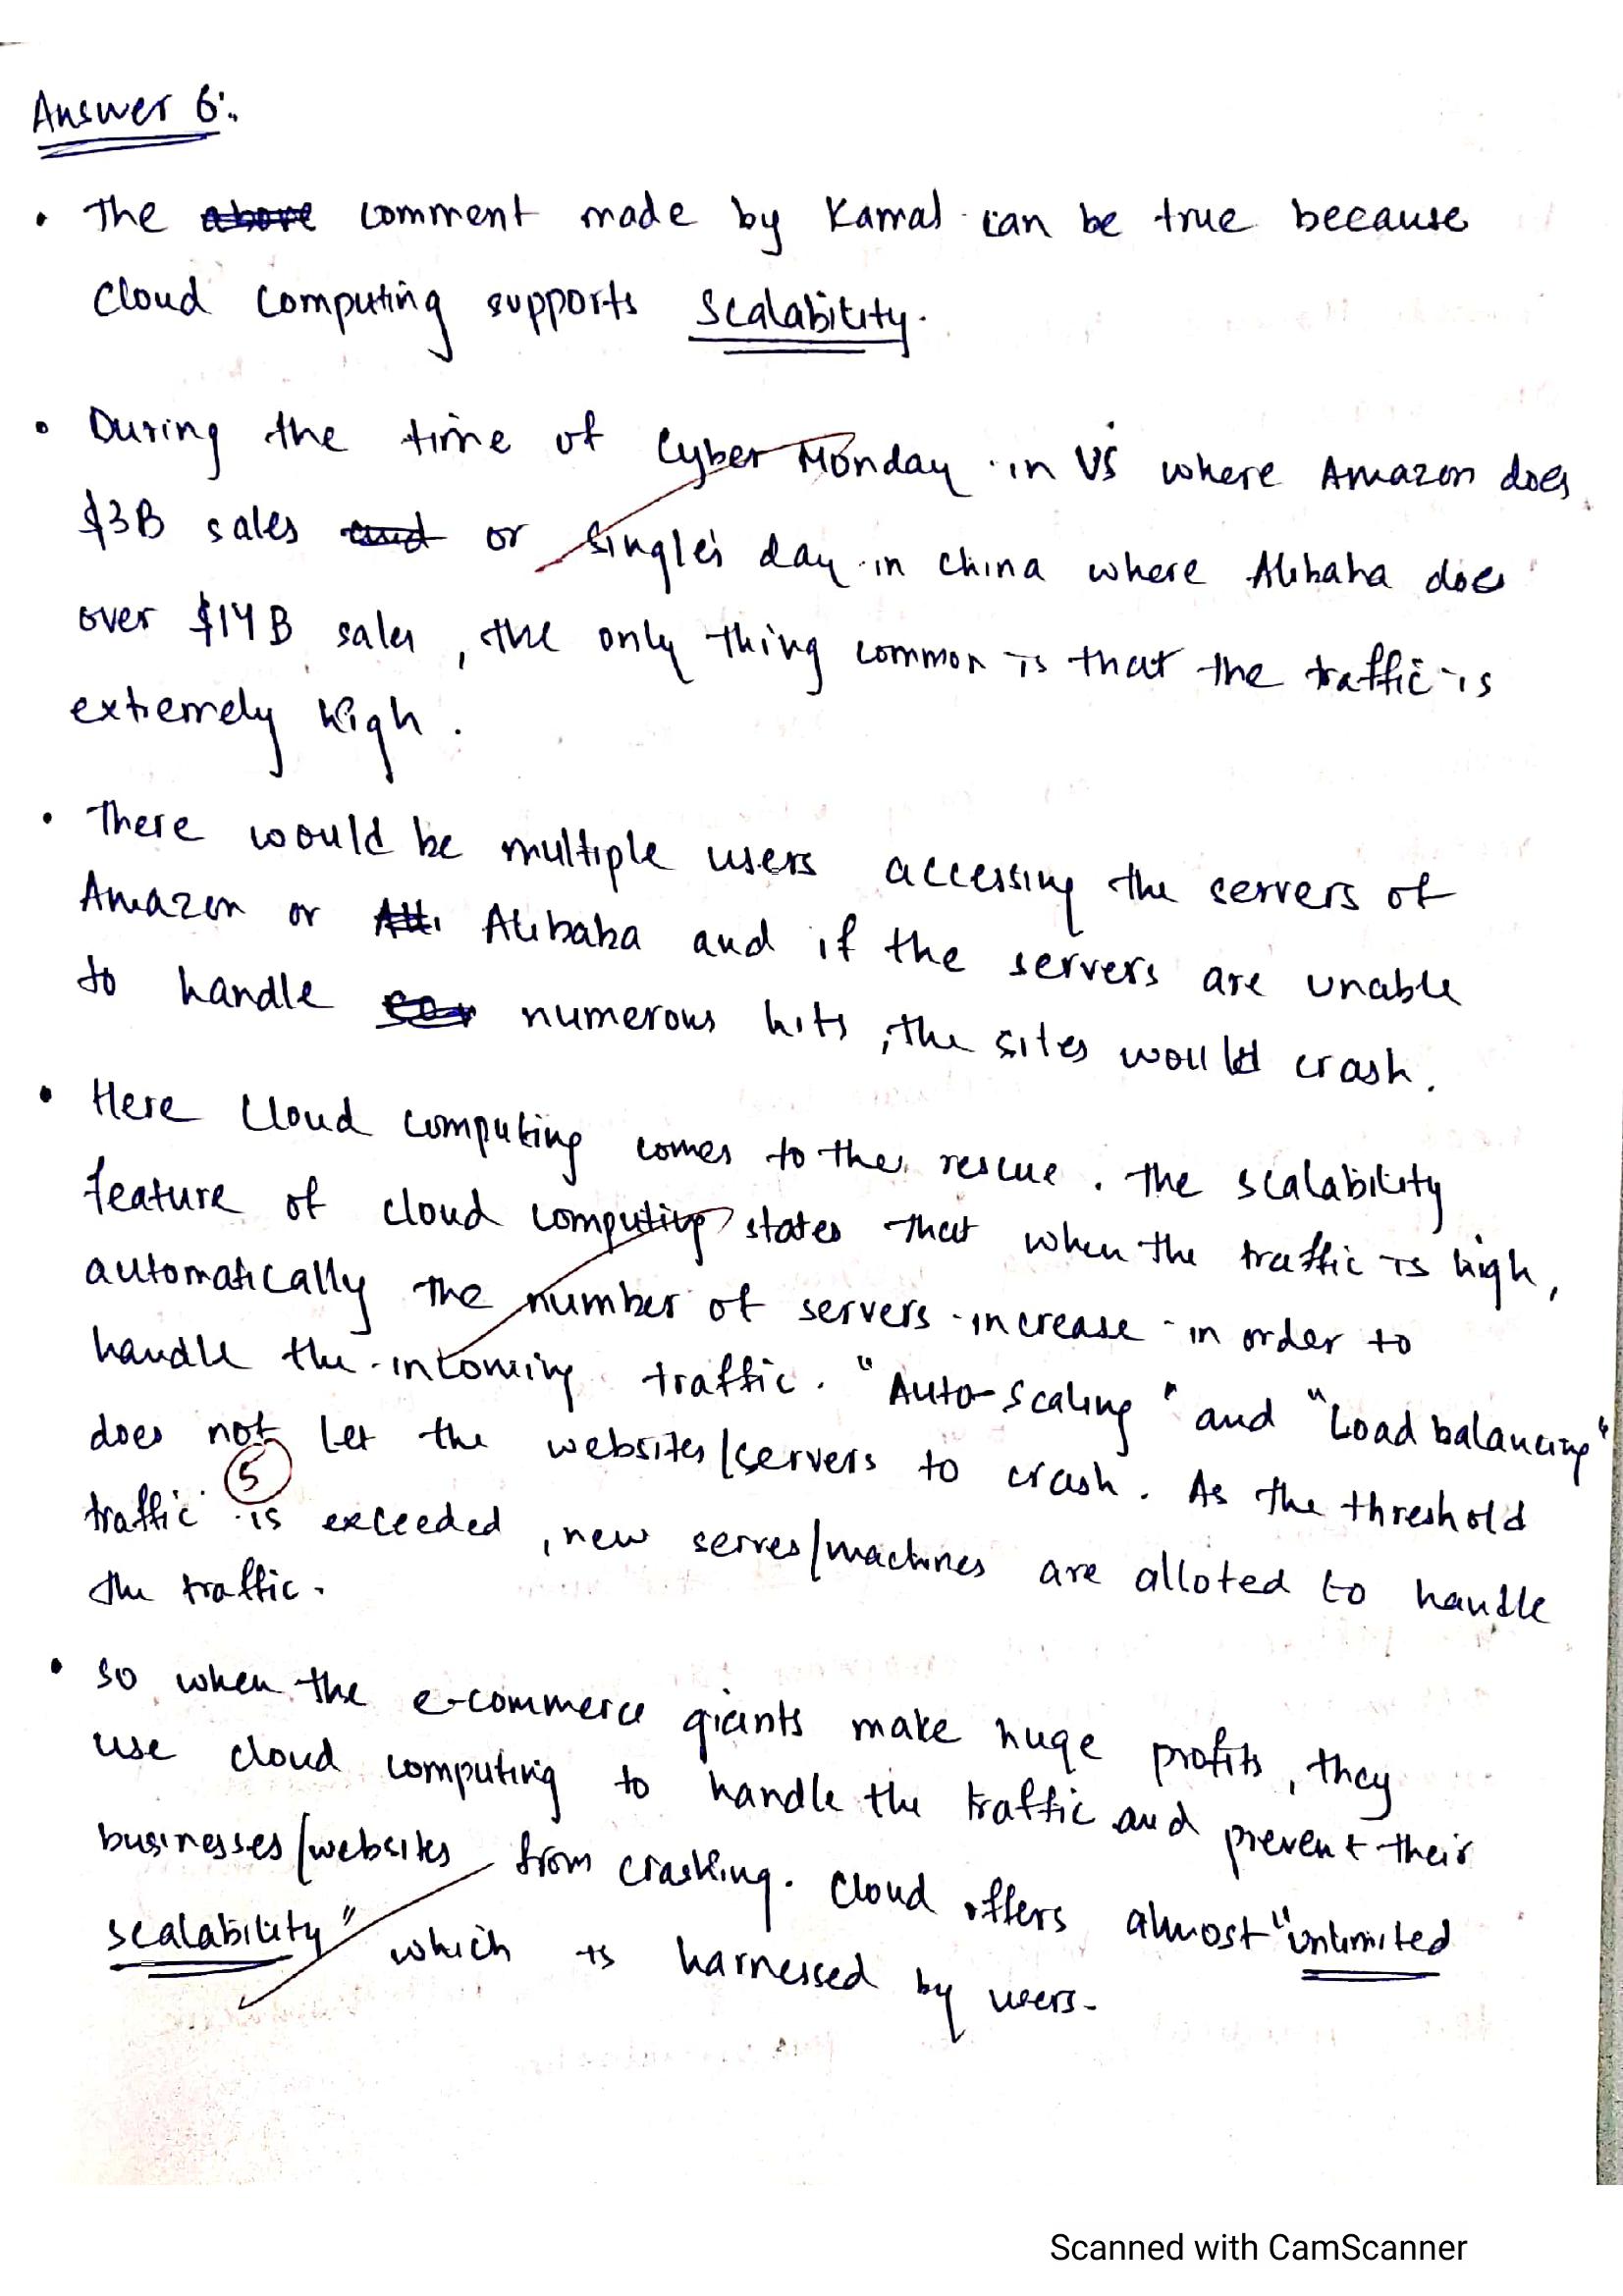 Answer 6:.
• The above comment made by Kamal can be true because
cloud computing supports scalability.
• During the time of Cyber Monday in US where Amazon does
$3B sales and or single's day in China where Alibaba does
over $14B sales, the only thing common is that the traffic is
extremely high.
• There would be multiple users accessing the servers of
Amazon or Ali Alibaba and if the servers are unable
to handle numerous hits, the sites would crash.
• Here cloud computing comes to the rescue. The scalability
feature of cloud computing states that when the traffic is high,
automatically the number of servers increase in order to
handle the incoming traffic. "Auto-scaling" and "Load balancing"
does not let the websites/servers to crash. As the threshold
5
traffic is exceeded, new serves/machines are alloted to handle
the traffic.
• So when the e-commerce giants make huge profits, they
use cloud computing to handle the traffic and prevent their
businesses/websites from crashing. Cloud offers almost "unlimited
scalability" which is harnessed by users.
Scanned with CamScanner